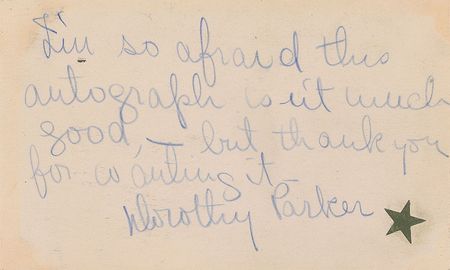 I'm so afraid this
autograph isn't much
good, — but thank you
for wanting it —
Dorothy Parker